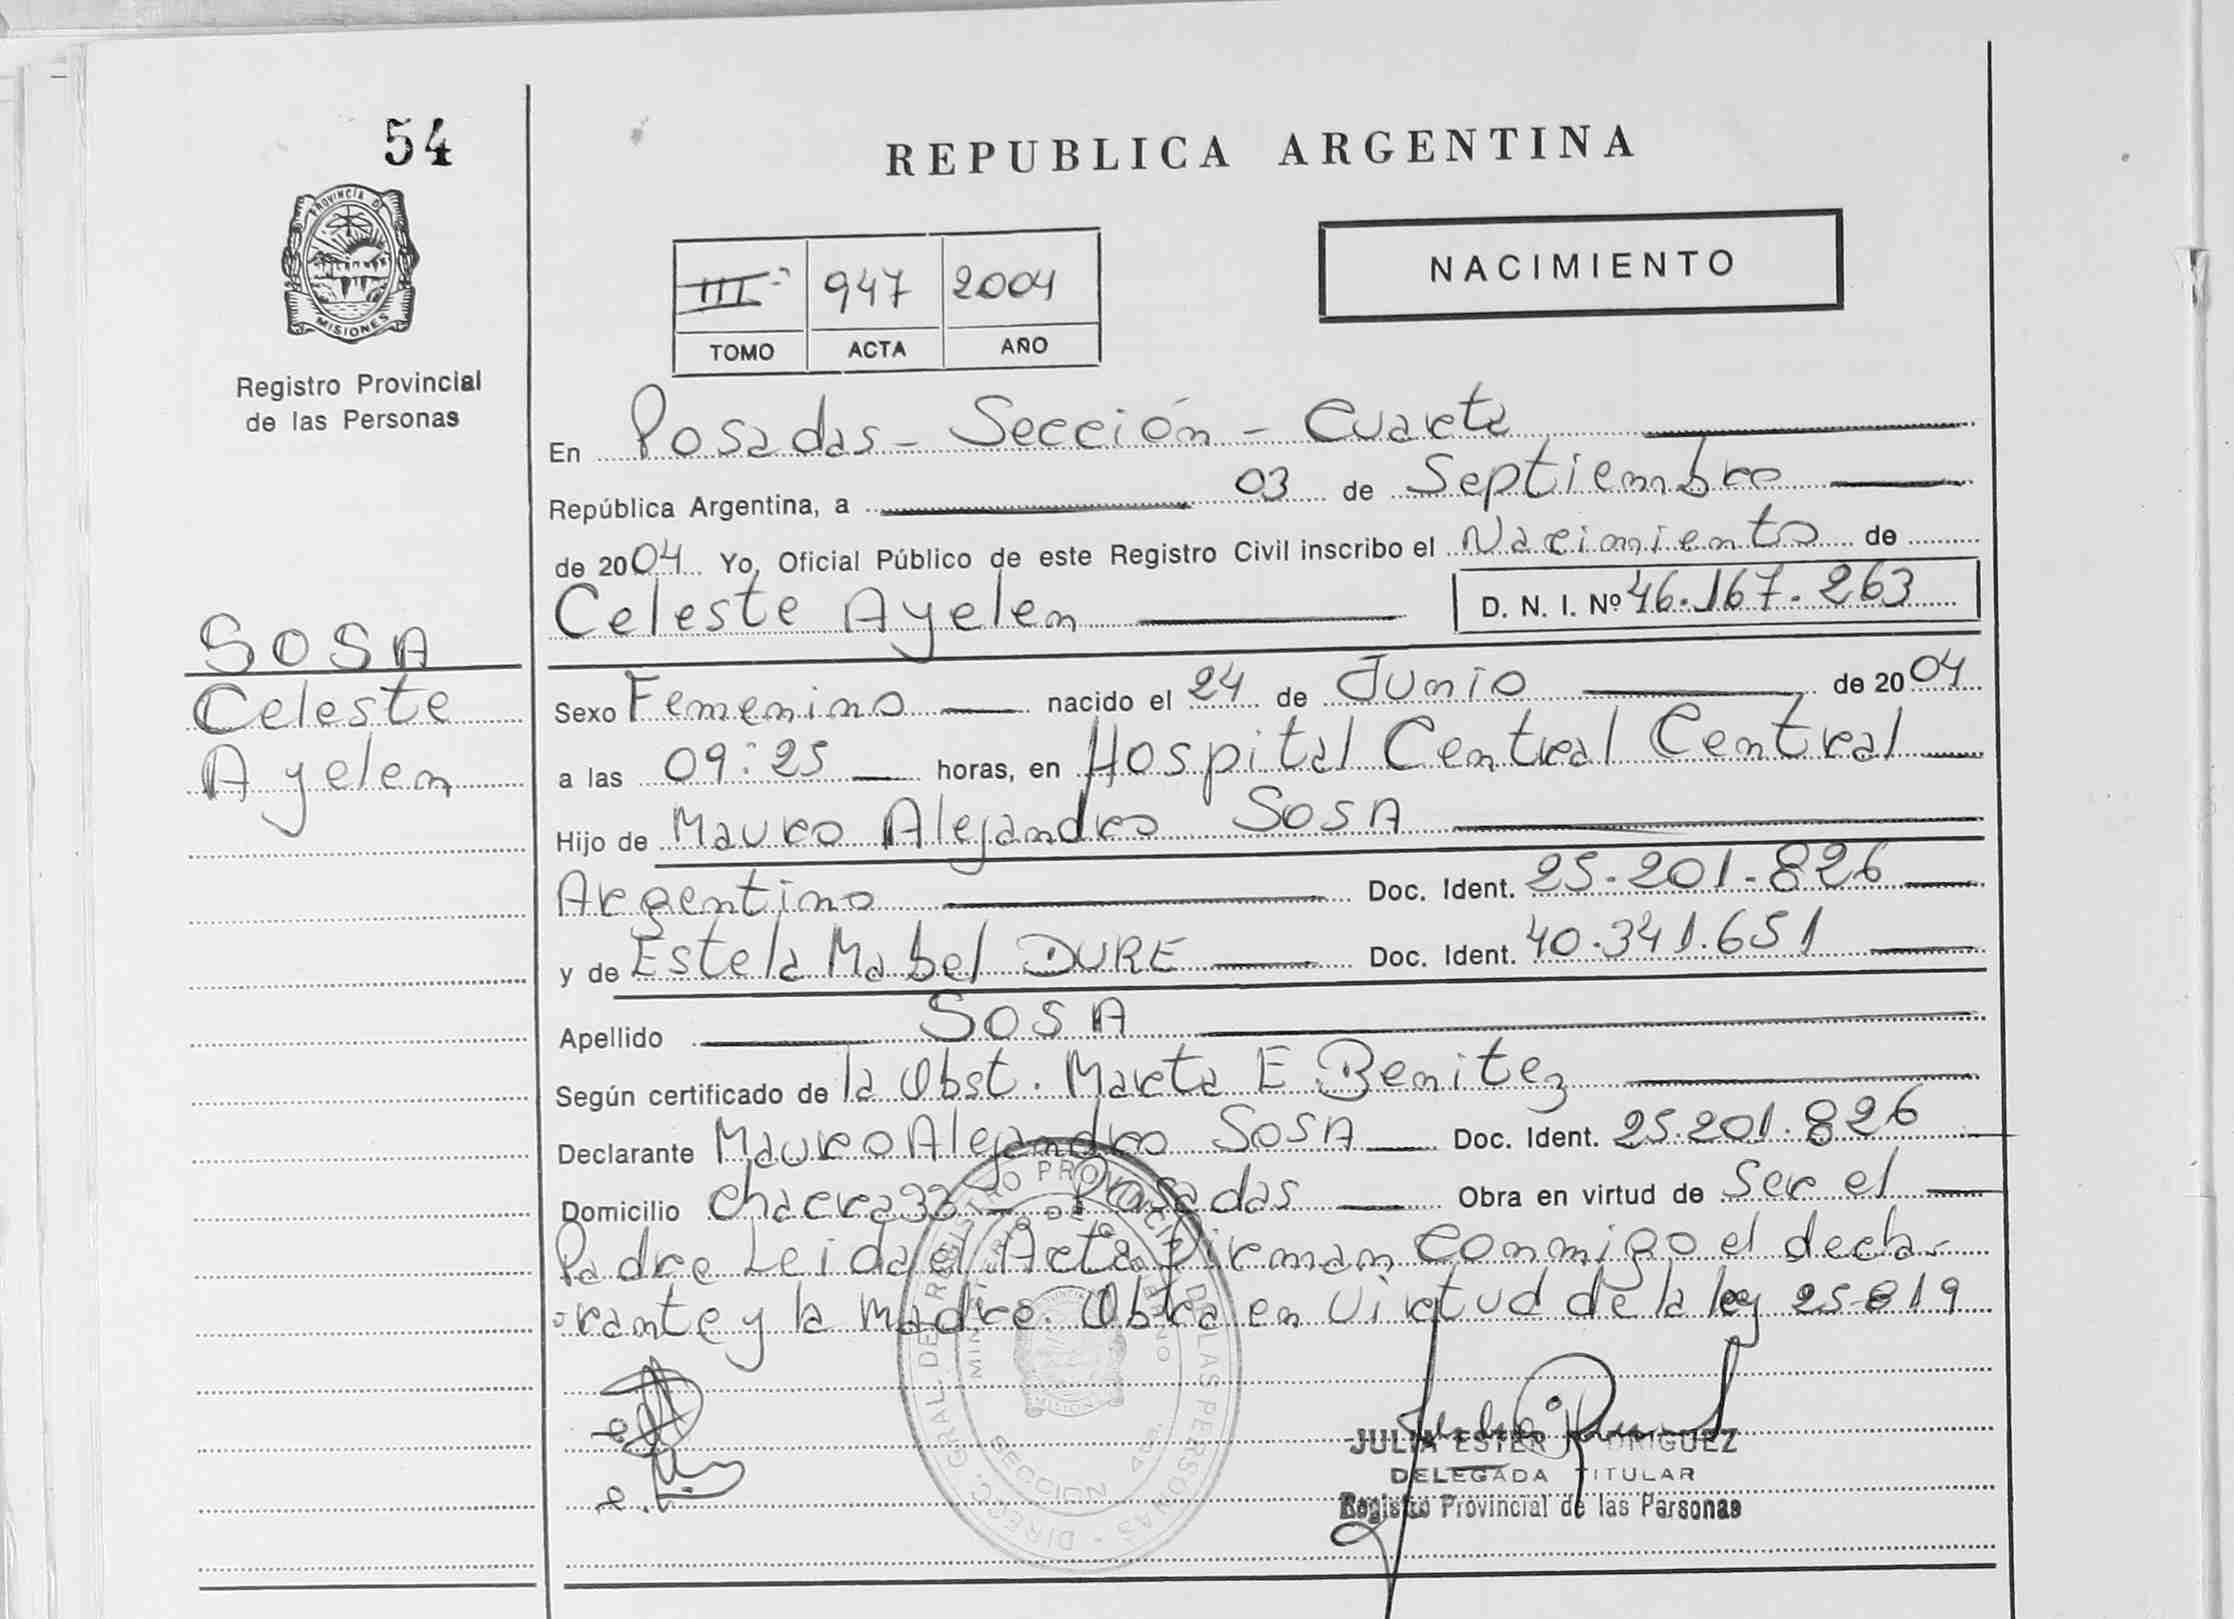 54
REPUBLICA ARGENTINA
PROVINCIA DE
MISIONES
Registro Provincial
de las Personas
NACIMIENTO
III 947 2004
TOMO ACTA AÑO
En Posadas - Sección - Cuarta
República Argentina, a 03 de Septiembre
de 2004 Yo, Oficial Público de este Registro Civil inscribo el Nacimiento de
Celeste Ayelen D. N. I. Nº 46.167.263
SOSA
Celeste
Ayelen
Sexo Femenino nacido el 24 de Junio de 2004
a las 09:25 horas, en Hospital Central Central
Hijo de Mauro Alejandro SOSA
Argentino Doc. Ident. 25.201.826
y de Estela Mabel DURE Doc. Ident. 40.341.651
Apellido SOSA
Según certificado de la Obst. Marta E. Benitez
Declarante Mauro Alejandro SOSA Doc. Ident. 25.201.826
Domicilio Chacra 33 - Posadas Obra en virtud de Ser el
Padre Leida el Acta Firman Conmigo el decla-
rante y la madre. Obra en Virtud de la ley 25-819
DIREC. GRAL. DE REGISTRO PROVINCIAL DE LAS PERSONAS
MINISTERIO DE GOBIERNO
MISIONES
SECCION 4ta.
JULIA ESTER RODRIGUEZ
DELEGADA TITULAR
Registro Provincial de las Personas